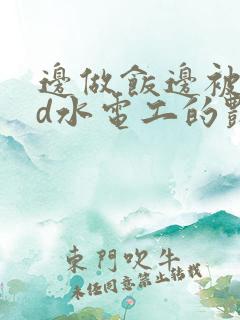 邊做飯邊被
d水電工的
東門吹牛
未經同意禁止轉載